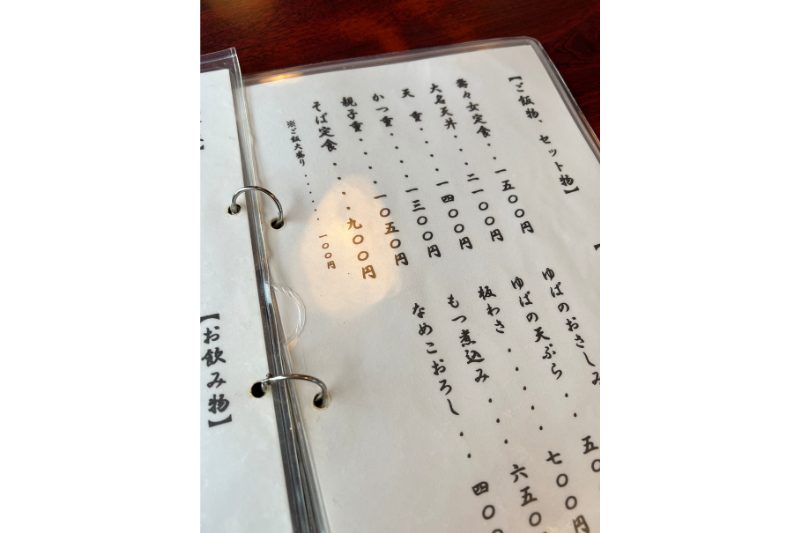 【ご飯物、セット物】
壽々女定食・・一五〇〇円
大名天丼・・・二一〇〇円
天重・・・・一四〇〇円
かつ重・・・・一三〇〇円
親子重・・・・一〇五〇円
そば定食・・・九〇〇円
※ご飯大盛り・・・・・一〇〇円
ゆばのおさしみ
ゆばの天ぷら・・・五〇
板わさ・・・・・七〇〇円
もつ煮込み・・・六五〇
なめこおろし・・四〇〇
【お飲み物】